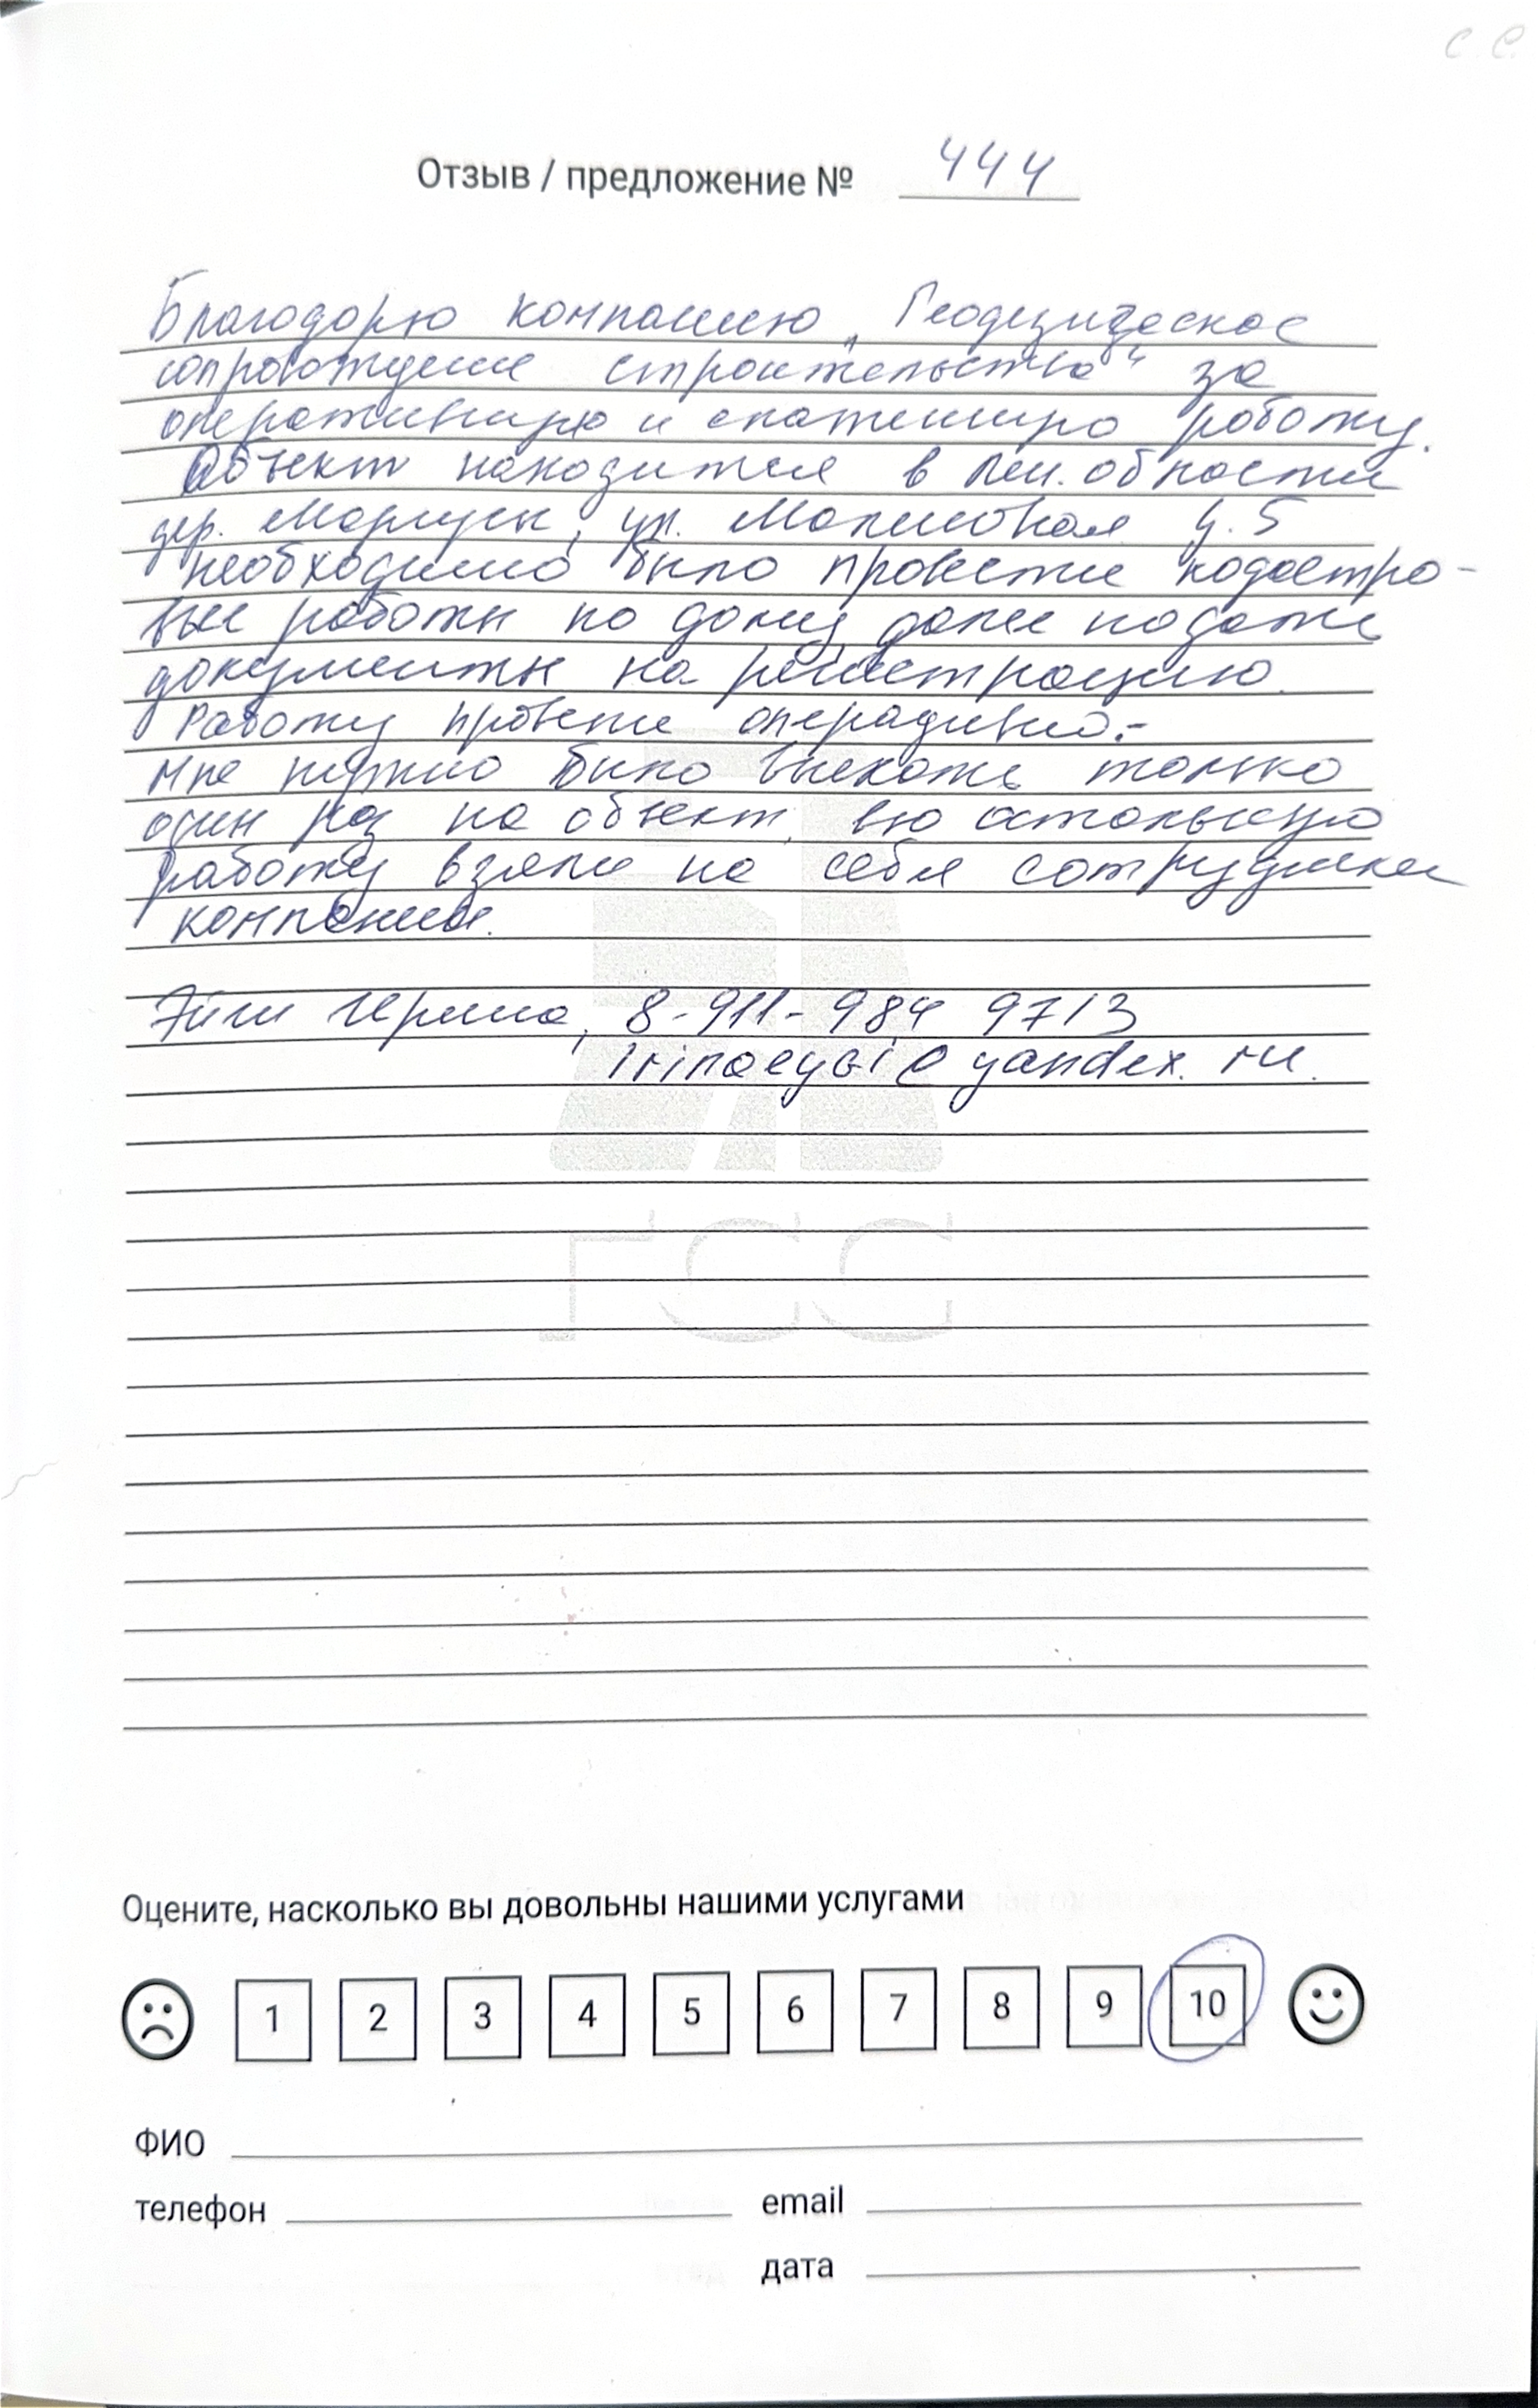 С. С.
Отзыв / предложение № 444
Благодарю компанию „Геодезическое
сопровождение строительства“ за
оперативную и слаженную работу.
Объект находится в Лен. области
дер. ул. Малиновая д. 5
необходимо было провести кадастро-
вые работы по дому, далее подать
документы на регистрацию.
Работу провели оперативно.-
Мне нужно было выехать только
один раз на объект, всю остальную
работу взяли на себя сотрудники
компании.
Ирина, 8-911-984 9713
@yandex.ru.
ГСС
Оцените, насколько вы довольны нашими услугами
1 2 3 4 5 6 7 8 9 10
ФИО
телефон email
дата